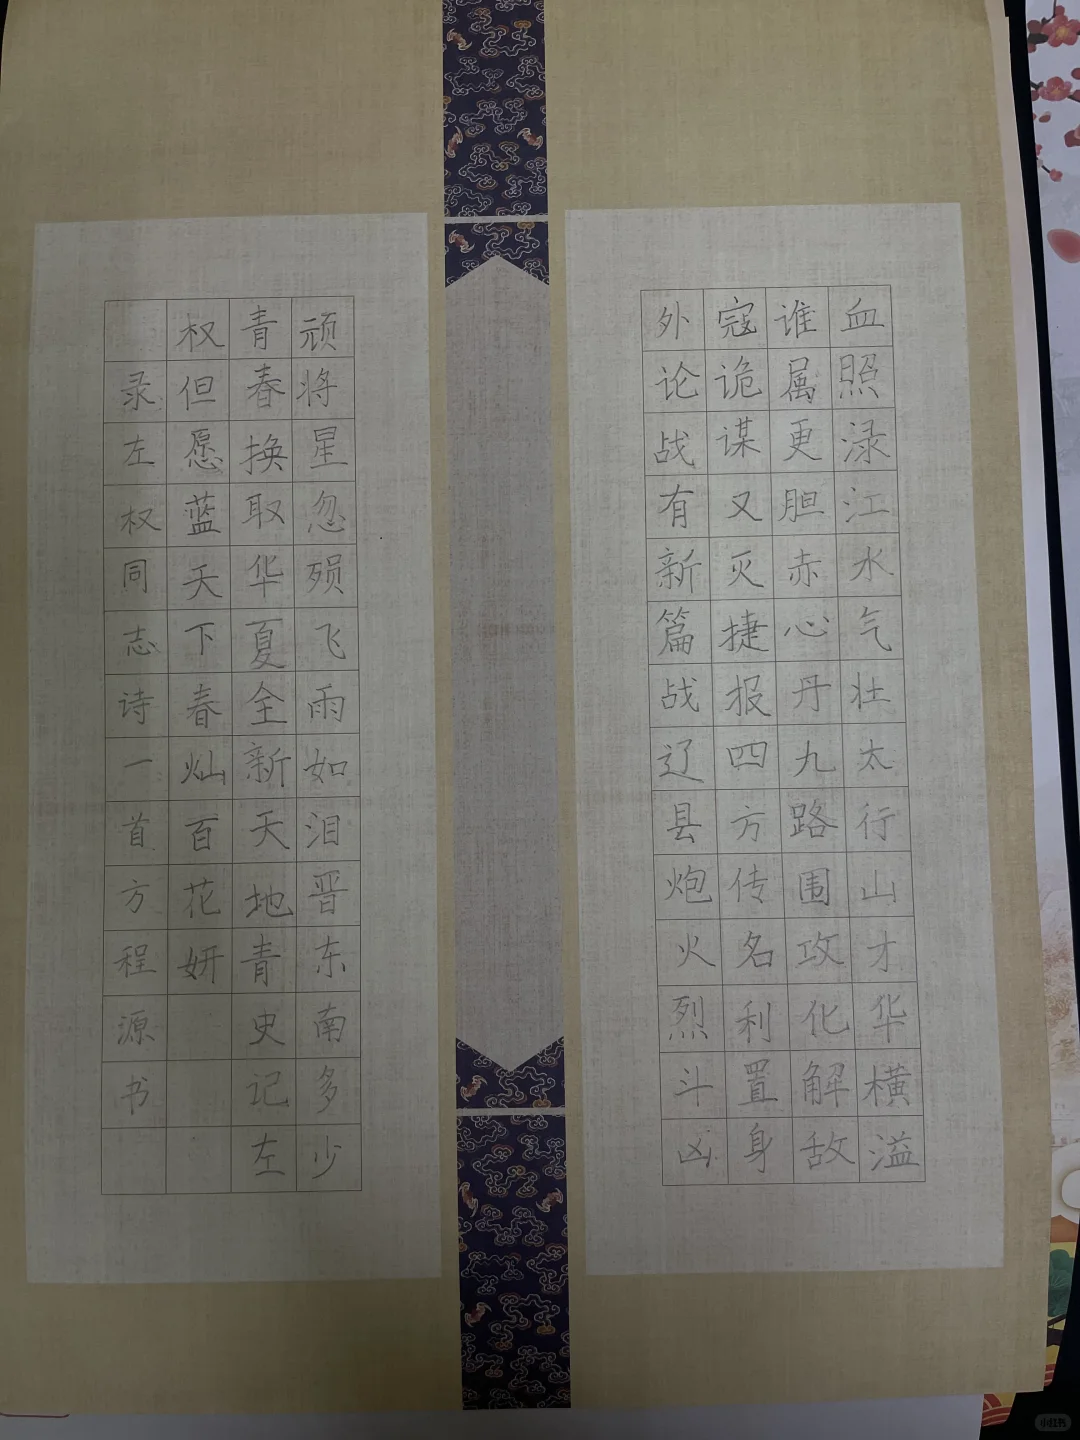 血照渌江水气壮太行山才华横溢
谁属更胆赤心丹九路围攻化解敌
寇诡谋又灭捷报四方传名利置身
外论战有新篇战辽县炮火烈斗凶
顽将星忽殒飞雨如泪晋东南多少
青春换取华夏全新天地青史记左
权但愿蓝天下春灿百花妍
录左权同志诗一首方程源书
小红书